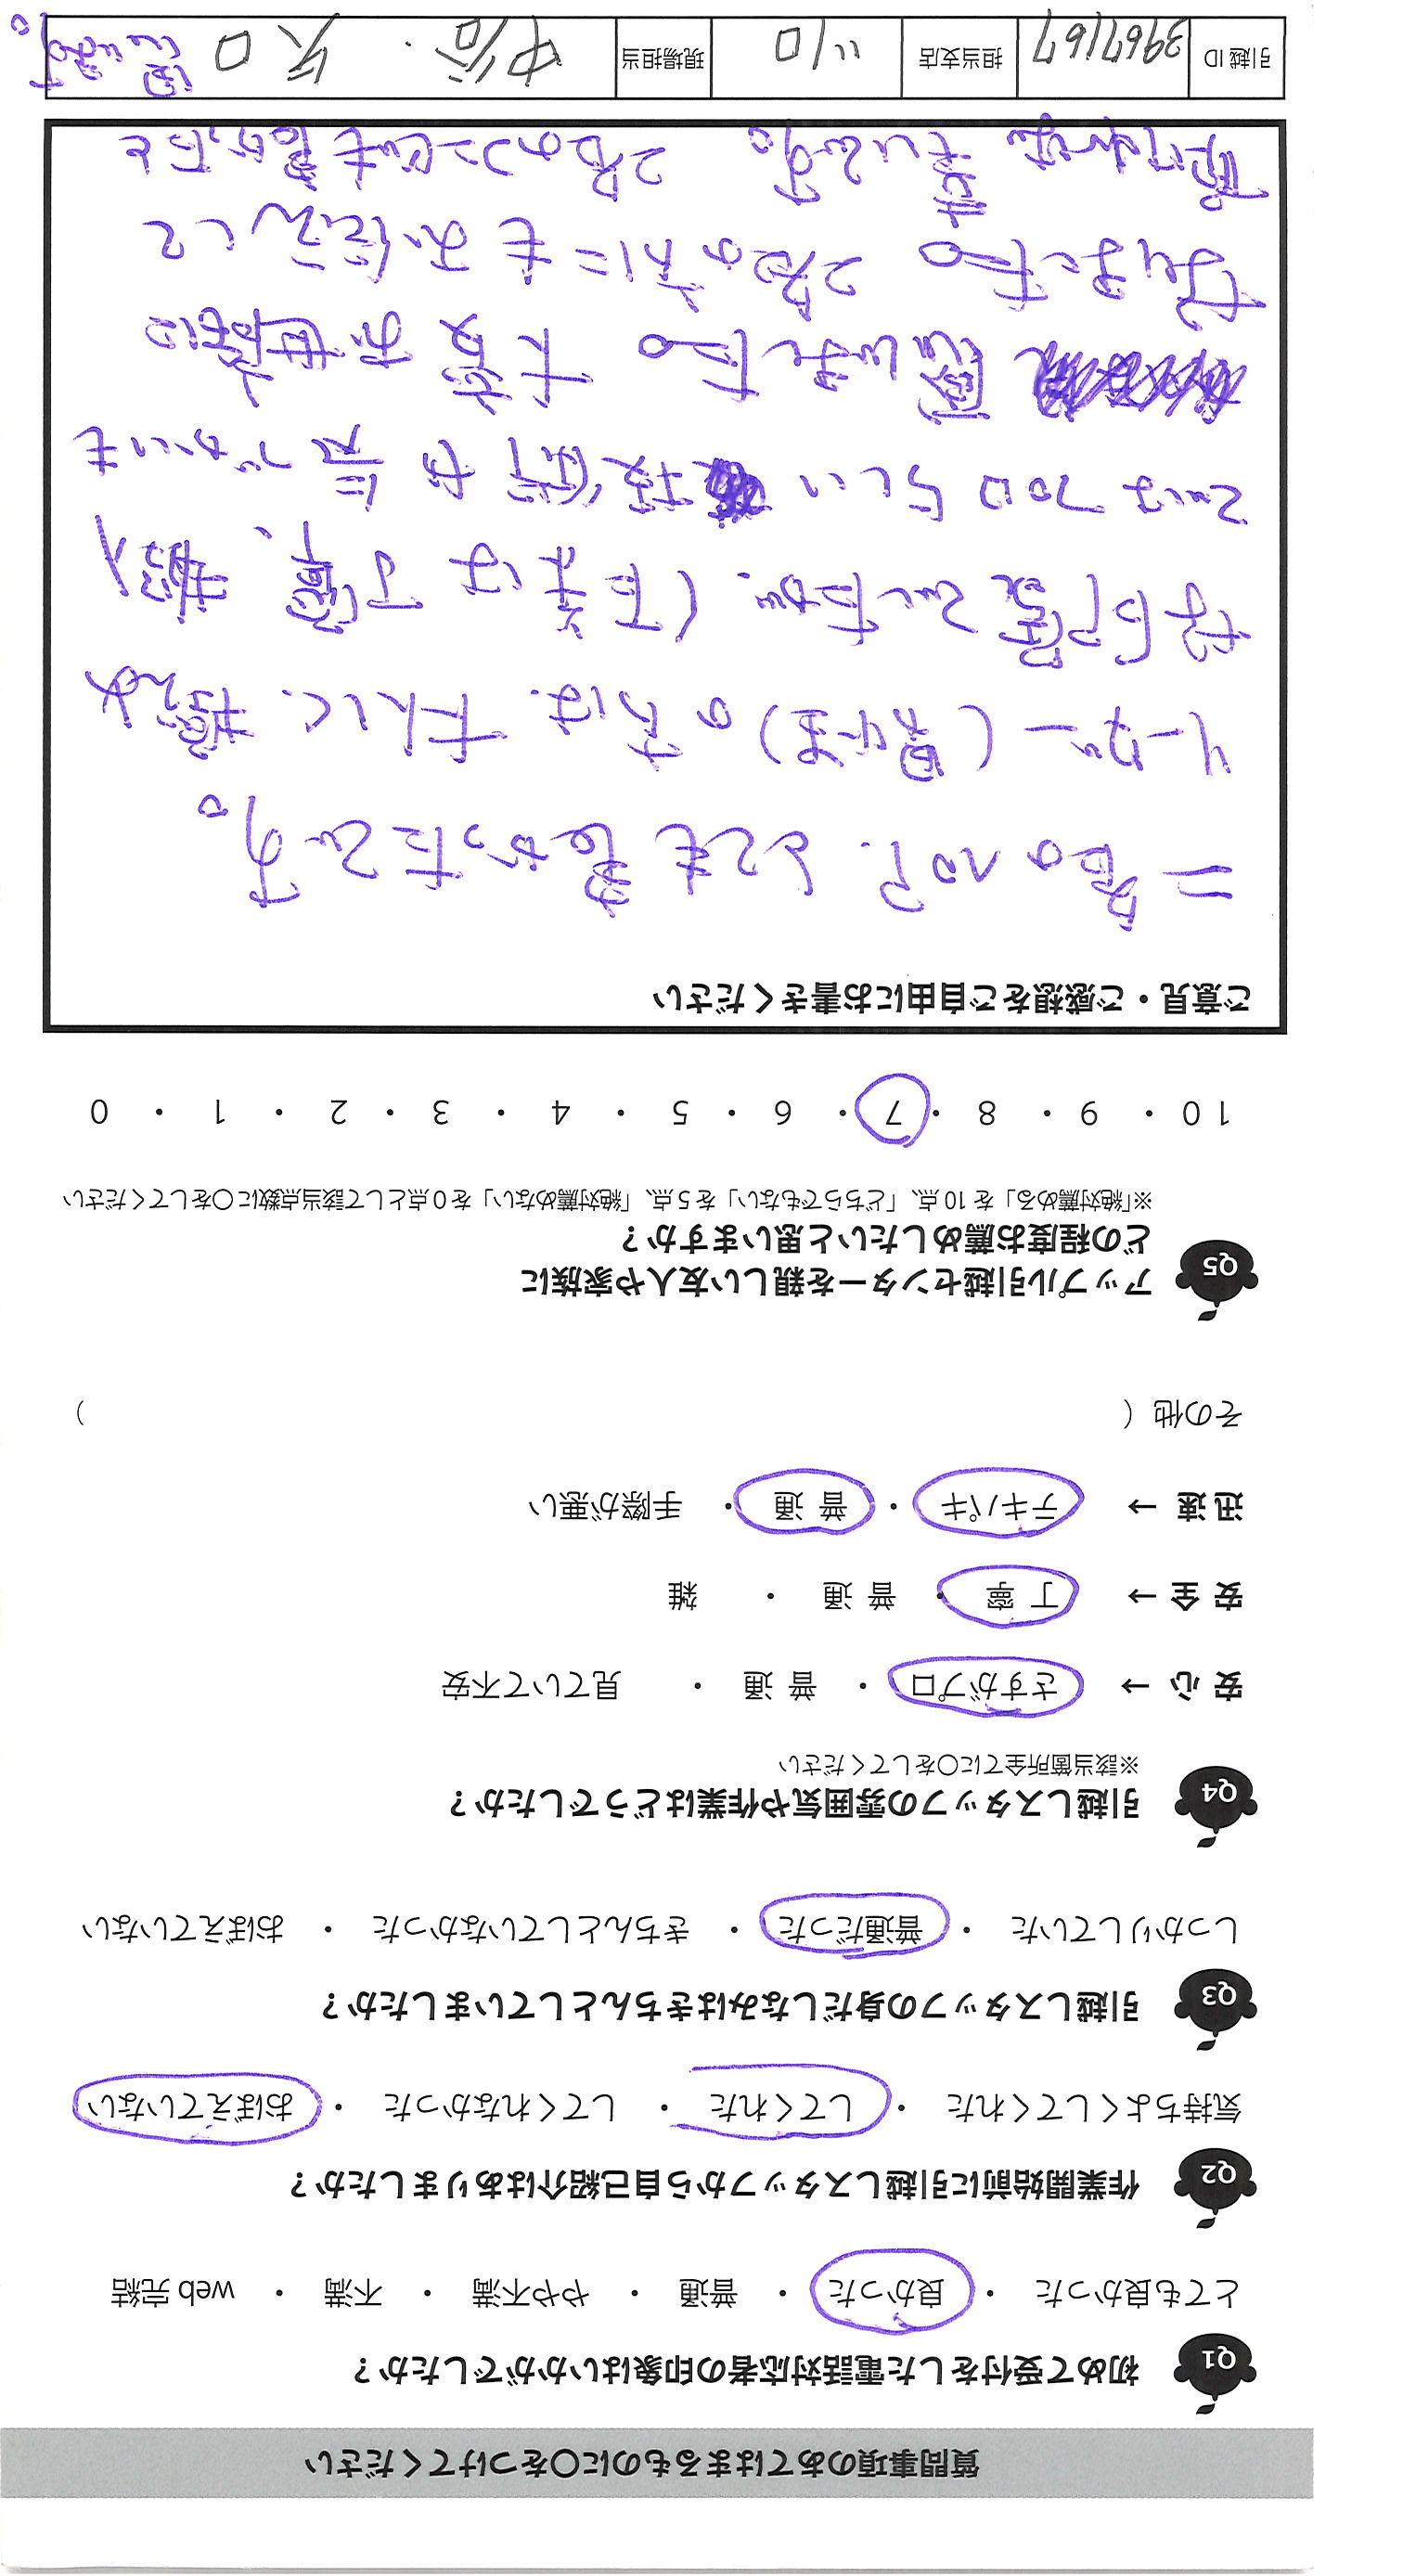 質問事項のあてはまるものに〇をつけてください
Q1 初めて受付をした電話対応者の印象はいかがでしたか？
とても良かった ・ 良かった ・ 普通 ・ やや不満 ・ 不満 ・ web 完結
Q2 作業開始前に引越しスタッフから自己紹介はありましたか？
気持ちよくしてくれた ・ してくれた ・ してくれなかった ・ おぼえていない
Q3 引越しスタッフの身だしなみはきちんとしていましたか？
しっかりしていた ・ 普通だった ・ きちんとしていなかった ・ おぼえていない
Q4 引越しスタッフの雰囲気や作業はどうでしたか？
※該当箇所全てに〇をしてください
安 心 → さすがプロ ・ 普 通 ・ 見ていて不安
安 全 → 丁 寧 ・ 普 通 ・ 雑
迅 速 → テキパキ ・ 普 通 ・ 手際が悪い
その他（ ）
Q5 アップル引越センターを親しい友人や家族に
どの程度お薦めしたいと思いますか？
※「絶対薦める」を 10 点、「どちらでもない」を 5 点、「絶対薦めない」を 0 点として該当点数に〇をしてください
10 ・ 9 ・ 8 ・ 7 ・ 6 ・ 5 ・ 4 ・ 3 ・ 2 ・ 1 ・ 0
ご意見・ご感想をご自由にお書きください
二名の プロ、とても良かったです。
リーダー ( ) の方は、
な印象でしたが、作業は丁寧、
でプロらしい 技術 な 気づかいも
感じました。大変お世話に
なりました。2名の方にもお伝えして
頂ければ幸いです。2名のコンビも良かったと
思います。
引越 ID 3967167 担当支店 川口 現場担当 中谷 ・ 矢口